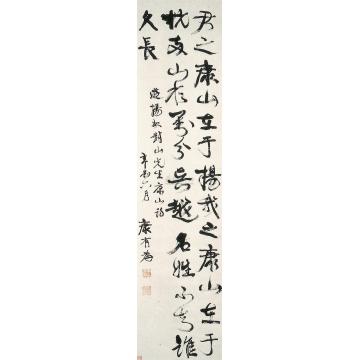 君之康山在于揚我之康山在于
杭 山 分吳越名姓不知誰
久長
揚 對山先生康山詩
辛酉六月
康有為